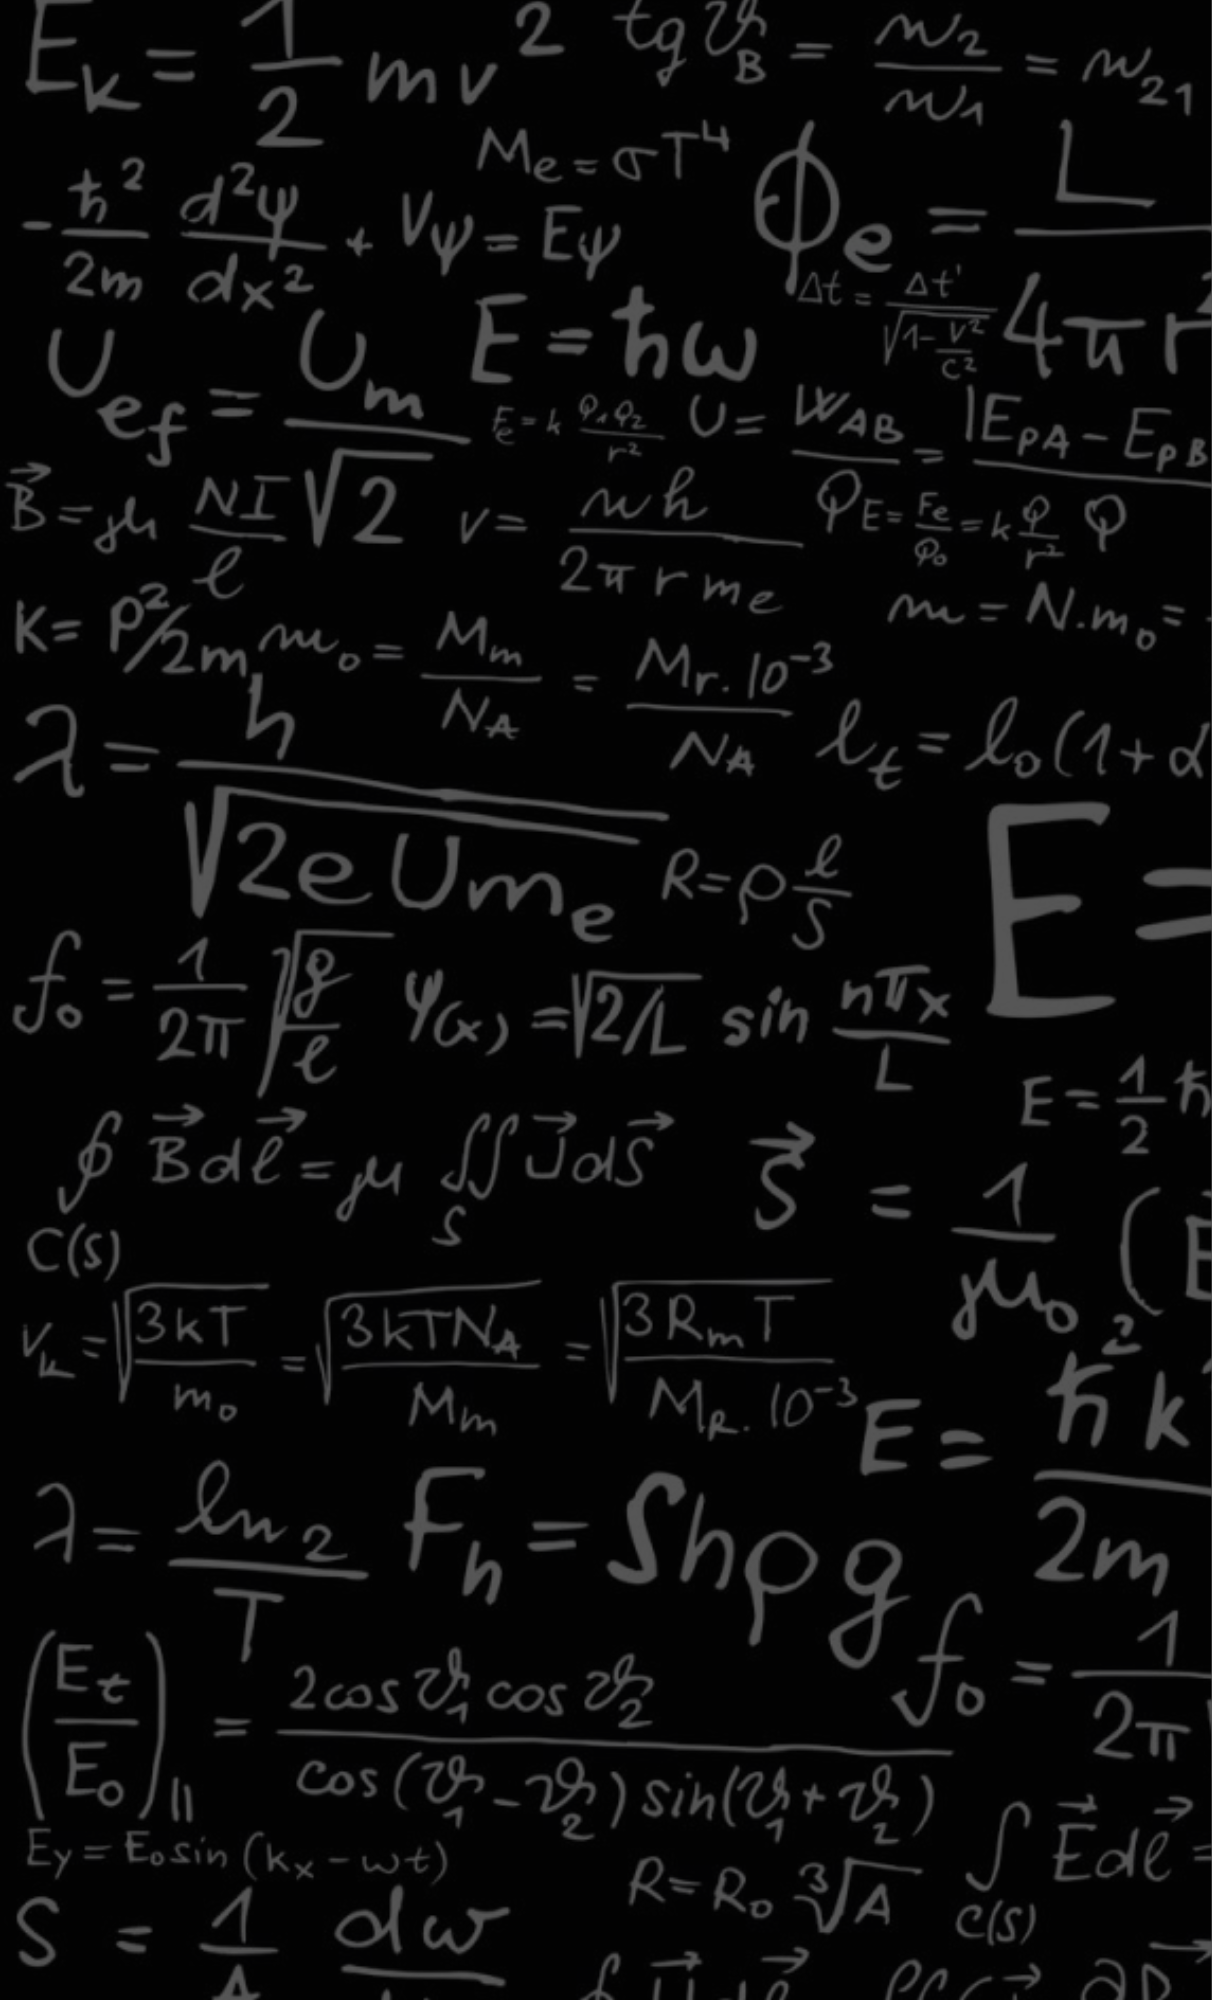 E_k = 1/2 mv²
tg ϑ_B = n₂/n₁ = n₂₁
M_e = σT⁴
Φ_e = L / 4πr²
-ħ²/2m d²ψ/dx² + Vψ = Eψ
Δt = Δt' / √(1 - v²/c²)
U_ef = U_m / √2
E = ħω
F_e = k Q₁Q₂/r²
U = W_AB / Q = |E_pA - E_pB / Q
B⃗ = μ NI/ℓ
v = nh / 2πrm_e
E = F_e/Q₀ = k Q/r²
K = p²/2m
m = N.m₀ =
m₀ = M_m/N_A = M_r.10⁻³/N_A
λ = h / √(2eUm_e)
ℓ_t = ℓ₀(1+α
R = ρ ℓ/S
E =
f₀ = 1/2π √(g/ℓ)
ψ(x) = √2/L sin nπx/L
E = 1/2 ħ
∮ B⃗ dℓ⃗ = μ ∬ J⃗ dS⃗
C(S) S
S⃗ = 1/μ₀ (E
v_k = √(3kT/m₀) = √(3kTN_A/M_m) = √(3R_mT/M_R.10⁻³)
E = ħ²k/2m
λ = ln 2/T
F_h = Shρg
f₀ = 1/2π
(E_t/E₀)_|| = 2cosϑ₁cosϑ₂ / cos(ϑ₁-ϑ₂)sin(ϑ₁+ϑ₂)
E_y = E₀sin(k_x - ωt)
R = R₀ ∛A
∫ E⃗ dℓ⃗ =
C(S)
S = 1/A dw